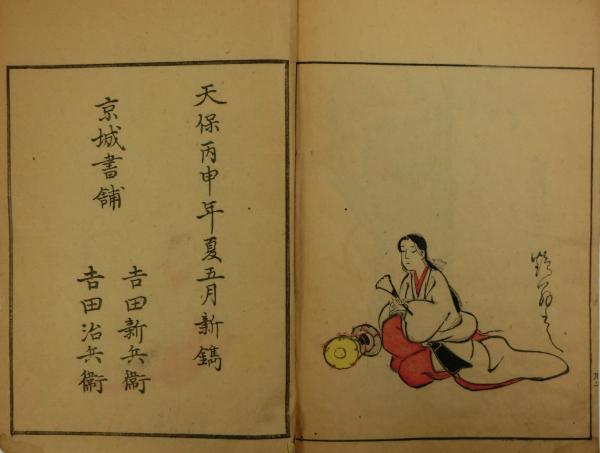 天保丙申年夏五月新鐫
京城書舗
吉田新兵衞
吉田治兵衞